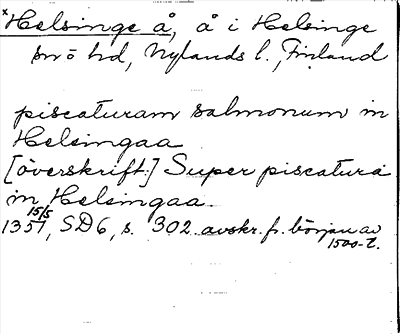 *Helsinge å, å i Helsinge
sn o hd, Nylands l., Finland
piscaturam salmonum in
Helsingaa
[överskrift:] Super piscatura
in Helsingaa
15/5
1351, SD6, s. 302 avskr. fr. början av
1500-t.